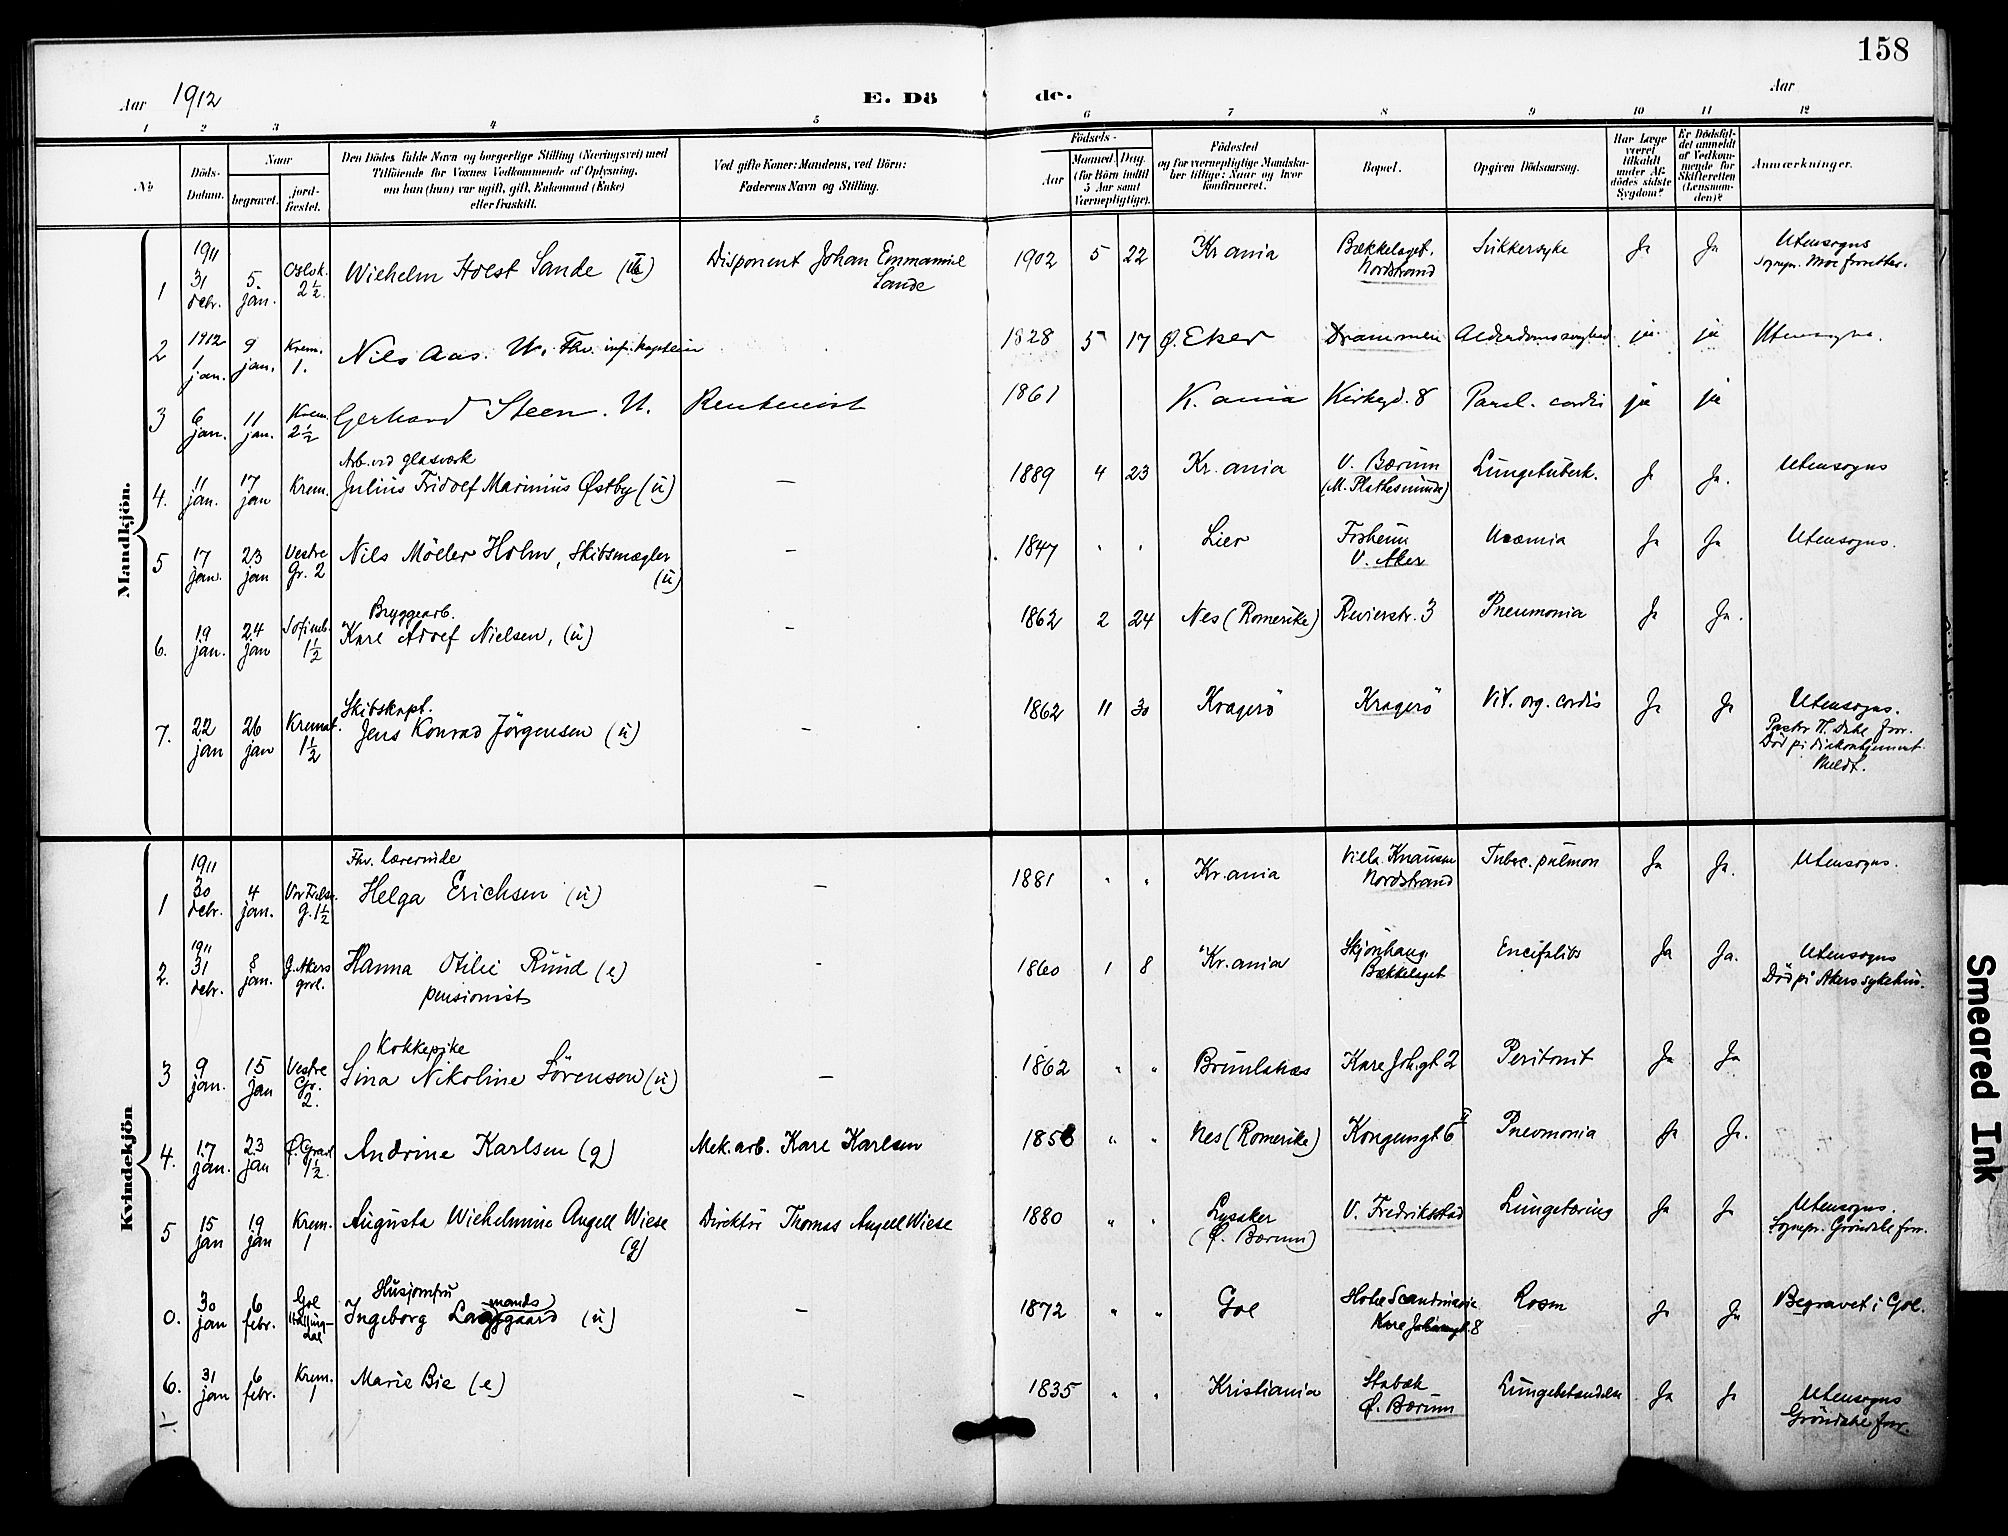 158
Aar 1912
E. Dö de.
Aar
1 2 3 4 5 6 7 8 9 10 11 12
No
Döds-Datum.
Naar
begravet.
jord-fæstet.
Den Dödes fulde Navn og borgerlige Stilling (Næringsvei) med
Tilföiende for Voxnes Vedkommende af Oplysning,
om han (hun) var ugift, gift, Enkemand (Enke)
eller fraskilt.
Ved gifte Koner: Mandens, ved Börn:
Faderens Navn og Stilling.
Födsels-
Aar
Maaned. Dag.
(for Börn indtil
5 Aar samt
Værnepligtige).
Födested
og for værnepligtige Mandska-
ber tillige: Naar og hvor
konfirmeret.
Bopæl.
Opgiven Dödsaarsag.
Har Læge
været
tilkaldt
under Af-
dödes sidste
Sygdom?
Er Dödsfal-
det anmeldt
af Vedkom-
mende for
Skifteretten
(Lensman-
den)?
Anmærkninger.
Mandkjön.
1 1911 31 decbr. 5 jan. Oslo k. 2½ Wilhelm Holst Sande (u) Disponent Johan Emmanuel Sande 1902 5 22 Kr.ania Bækkelaget. Nordstrand Sukkersyke Ja Ja Utensogns Sognepr. Moe forrettet.
2 1912 1 jan. 9 jan. Krem. 1. Nils Aas. U. Fhv. inf. kaptein 1828 5 17 Ø. Eker Drammen Alderdomssvaghed ja ja Utensogns.
3 6 jan. 11 jan. Krem. 2½ Gerhard Steen. U. Rentenist 1861 K.ania Kirkegd. 8 Paral. cordis ja ja
4. 11 jan. 17 jan Krem. Arb. ved glasverk Julius Fridolf Marinius Østby (u) — 1889 4 23 Kr.ania V. Bærum (M. Plathesminde) Lungetuberk. Ja Ja. Utensogns
5 17 jan. 23 jan Vestre Gr. 2 Nils Möller Holm, Skibsmægler (u) — 1847 " " Lier Forheim V. Aker Uræmia Ja Ja Utensogns.
6. 19 jan. 24 jan Sofienb. 1½ Bryggearb. Karl Adolf Nielsen, (u) — 1862 2 24 Nes (Romerike) Revierstr. 3 Pneumonia Ja Ja.
7. 22 jan 26 jan Kremat. 1½ Skibskapt. Jens Konrad Jörgensen (u) — 1862 11 30 Kragerö Kragerö Vit. org. cordis Ja Ja Utensogns. Pastor H. Dahl forr. Död på diakonhjemmet. Meldt.
Kvindekjön
1 1911 30 decbr. 4 jan. Vor Frelser G. 1½ Fhv. lærerinde Helga Erichsen (u) — 1881 " " Kr.ania Villa Knausen Nordstrand Tuberc. pulmon Ja Ja. Utensogns.
2. 1911 31 decbr. 8 jan. G. Akers grvl. Hanna Otilie Ruud (e) pensionist — 1860 1 8 Kr.ania Skjönhaug. Bækkelaget Encifalitis Ja Ja. Utensogns Död på Akers sykehus.
3 9 jan. 15 jan Vestre Gr. 2. Kokkepike Lina Nikoline Sörensen (u) — 1862 " " Brunlanes Karl Joh. gt 2 Peritonit Ja Ja
4. 17 jan. 23 jan Ø. Gravl 1½. Andrine Karlsen (g) Mek. arb. Karl Karlsen 1858 " " Nes (Romerike) Kongensgt. 6 II Pneumonia Ja Ja.
5 15 jan 19 jan Krem. 1 Augusta Wilhelmine Angell Wiese (g) Direktör Thomas Angell Wiese 1880 " " Lysaker (Ø. Bærum) V. Fredrikstad Lungetæring Ja Ja Utensogns. Sognepr. Gröndahl forr.
0. 30 jan 6 febr. Gol Hallingdal Husjomfru Ingeborg gaard mands) (u) — 1872 " " Gol Hotel Scandinavie Karl Johansgt. 8 Rosen Ja Ja Begravet i Gol.
6. 31 jan 6 febr. Krem. 1 Marie Bie (e) — 1835 " " Kristiania Stabæk Ø. Bærum Lungebetændelse Ja Ja Utensogns Gröndahl forr.
Smeared Ink